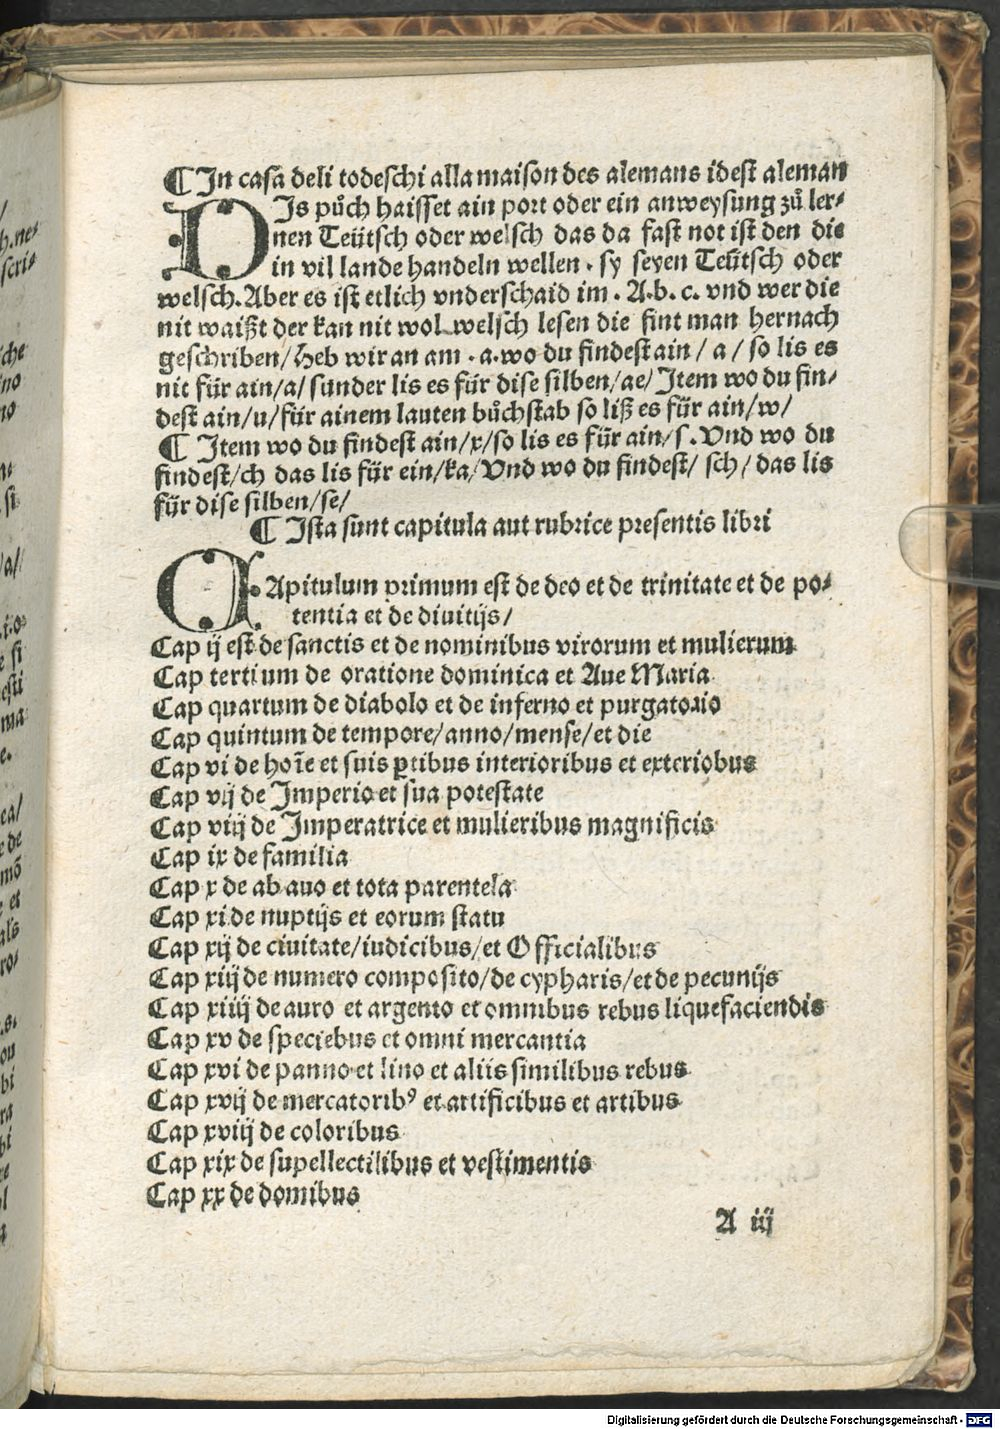 ¶ In casa deli todeschi alla maison des alemans idest aleman
DIs půch haisset ain port oder ein anweysung zů ler-
nen Teütsch oder welsch das da fast not ist den die
in vil lande handeln wellen . sy seyen Teütsch oder
welsch. Aber es ist etlich vnderschaid im . A. b. c. vnd wer die
nit waißt der kan nit wol welsch lesen die fint man hernach
geschriben/ Heb wir an am . a. wo du findest ain / a / so lis es
nit für ain/a/ sunder lis es für dise silben/ae/ Item wo du fin-
dest ain/u/für ainem lauten bůchstab so liß es für ain/w/
¶ Item wo du findest ain/x/so lis es für ain/s . Vnd wo du
findest/ch das lis für ein/ka/Vnd wo du findest/ sch/ das lis
für dise silben/se/
¶ Ista sunt capitula aut rubrice presentis libri
CApitulum primum est de deo et de trinitate et de po-
tentia et de diuitijs/
Cap ij est de sanctis et de nominibus virorum et mulierum
Cap tertium de oratione dominica et Aue Maria
Cap quartum de diabolo et de inferno et purgatorio
Cap quintum de tempore/anno/mense/et die
Cap vi de hoīe et suis ꝑtibus interioribus et exteriobus
Cap vij de Imperio et sua potestate
Cap viij de Imperatrice et mulieribus magnificis
Cap ix de familia
Cap x de ab auo et tota parentela
Cap xi de nuptijs et eorum statu
Cap xij de ciuitate/iudicibus/et Officialibus
Cap xiij de numero composito/de cypharis/et de pecunijs
Cap xiiij de auro et argento et omnibus rebus liquefaciendis
Cap xv de speciebus et omni mercantia
Cap xvi de panno et lino et aliis similibus rebus
Cap xvij de mercatoribꝰ et artificibus et artibus
Cap xviij de coloribus
Cap xix de supellectilibus et vestimentis
Cap xx de domibus
A iij
Digitalisierung gefördert durch die Deutsche Forschungsgemeinschaft - DFG